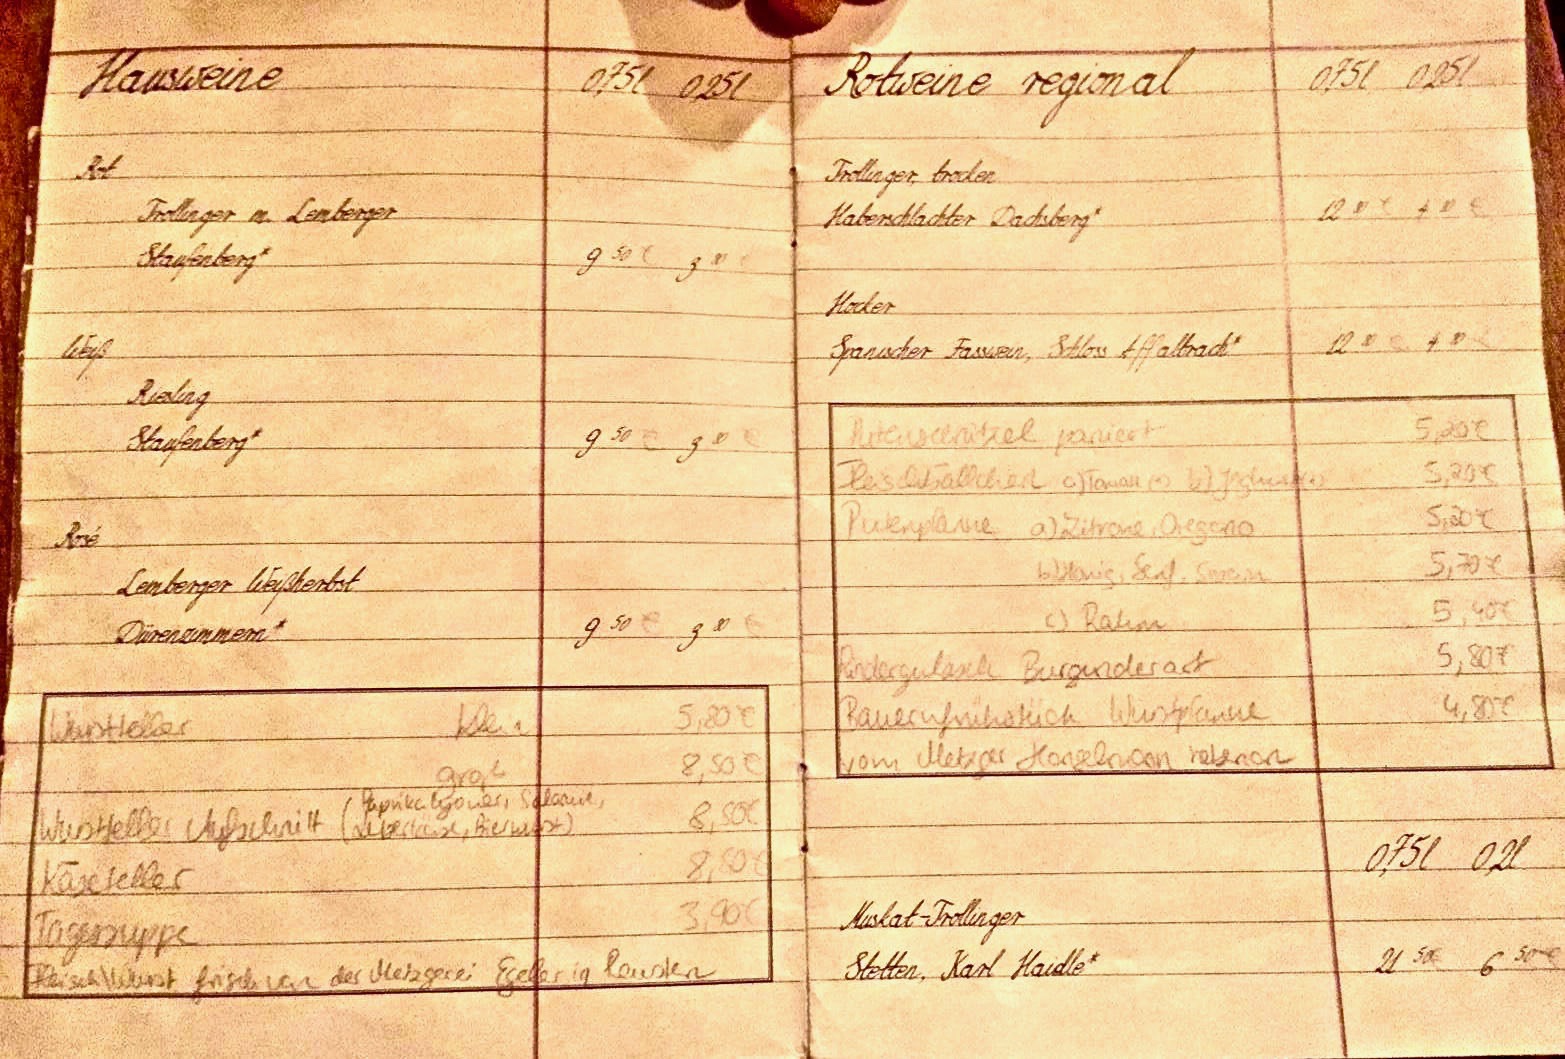 Hausweine 0,75l 0,25l
Rot
Trollinger m. Lemberger
Staufenberg* 9 50 € 3 80 €
Weiß
Riesling
Staufenberg* 9 50 € 3 80 €
Rosé
Lemberger Weißherbst
Dürrenzimmern* 9 50 € 3 80 €
Wurstteller klein 5,20 €
groß 8,50 €
Wurstteller Aufschnitt (Paprikalyoner, Salami,
Bierwurst) 8,50 €
Käseteller 8,80 €
Tagessuppe 3,90 €
Fleisch/Wurst frisch von der Metzgerei Egeler in Reusten
Rotweine regional 0,75l 0,25l
Trollinger, trocken
Haberschlachter Dachsberg* 12 € 4 €
Hocker
Spanischer Fasswein, Schloss Affaltrach* 12 € 4 €
Putenschnitzel paniert 5,20 €
Fleischbällchen a) Tomate b) Joghurt 5,20 €
Putenpfanne a) Zitrone, Oregano 5,20 €
b) Honig, Senf, 5,70 €
c) Rahm 5,40 €
Rindergulasch Burgunderart 5,80 €
Bauernfrühstück Wurstpfanne 4,80 €
vom Metzger
0,75l 0,2l
Muskat-Trollinger
Stetten, Karl Haidle* 21 50 € 6 50 €